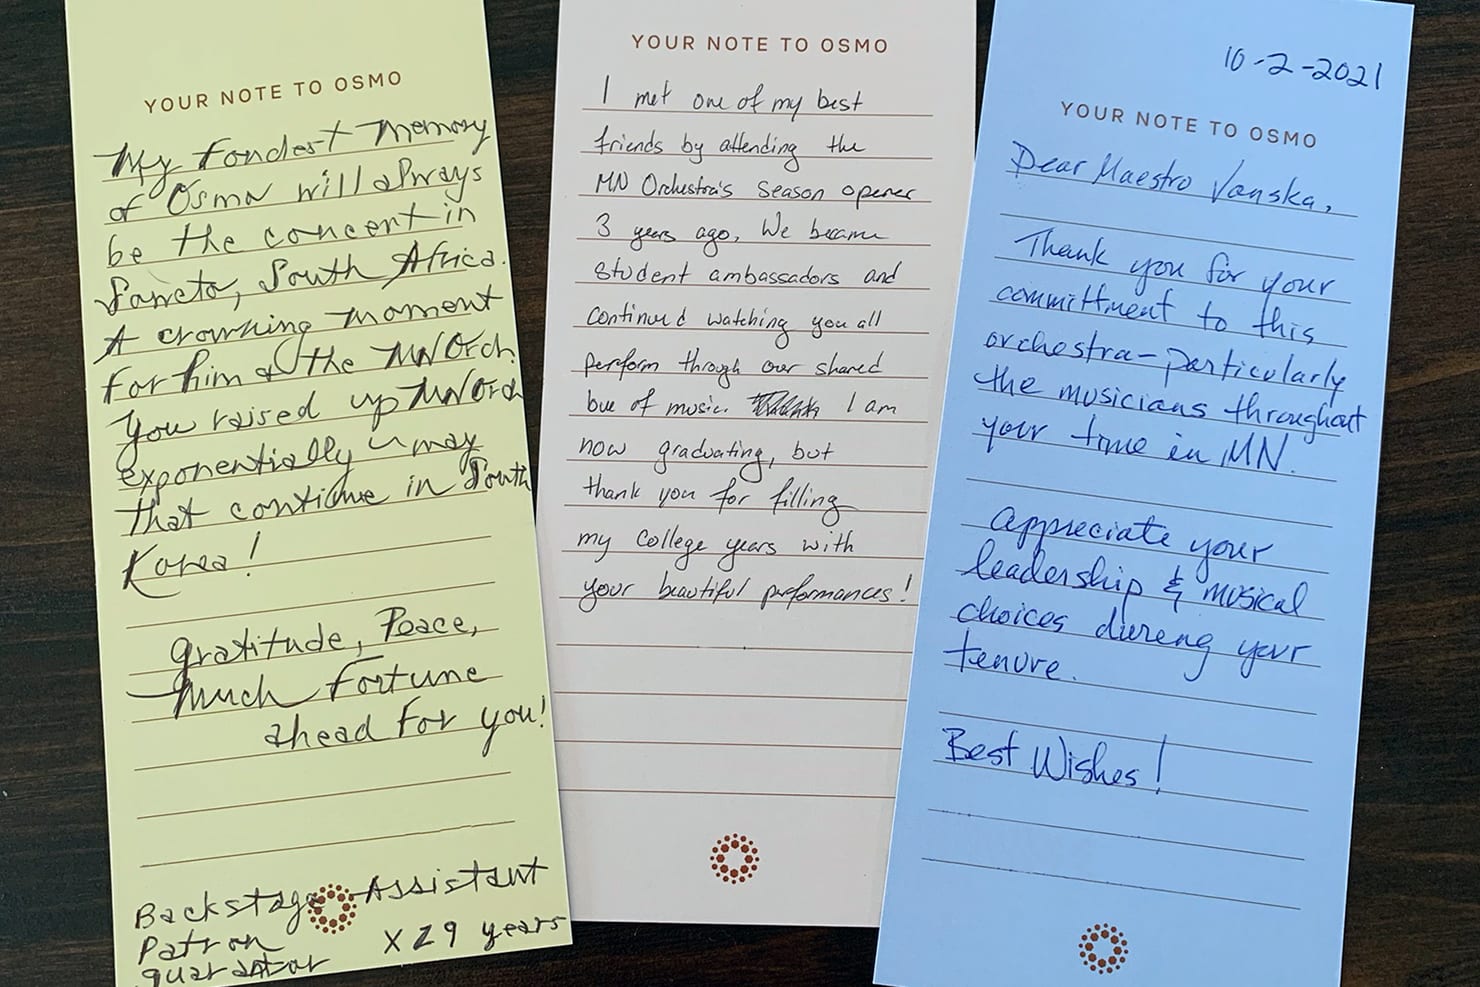 YOUR NOTE TO OSMO
My fondest Memory
of Osmo will always
be the concert in
Soweto, South Africa.
A crowning moment
for him & the MN Orch.
You raised up MN Orch
exponentially may
that continue in South
Korea!
gratitude, Peace,
Much Fortune
ahead for you!
Backstage Assistant
Patron x 29 years
guarantor
YOUR NOTE TO OSMO
I met one of my best
friends by attending the
MN Orchestra's season opener
3 years ago. We became
student ambassadors and
continued watching you all
perform through our shared
love of music. I am
now graduating, but
thank you for filling
my college years with
your beautiful performances!
10-2-2021
YOUR NOTE TO OSMO
Dear Maestro Vanska,
Thank you for your
committment to this
orchestra - particularly
the musicians throughout
your time in MN.
Appreciate your
leadership & musical
choices during your
tenure.
Best Wishes!